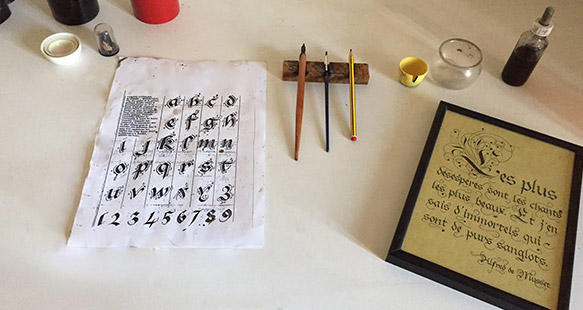 a b c d
e f g h
i j k l m n
o p q r s t
u v w x y z
1 2 3 4 5 6 7 8 9
Les plus
désespérés sont les chants
les plus beaux. Et j'en
sais d'immortels qui -
sont de purs sanglots.
Alfred de Musset